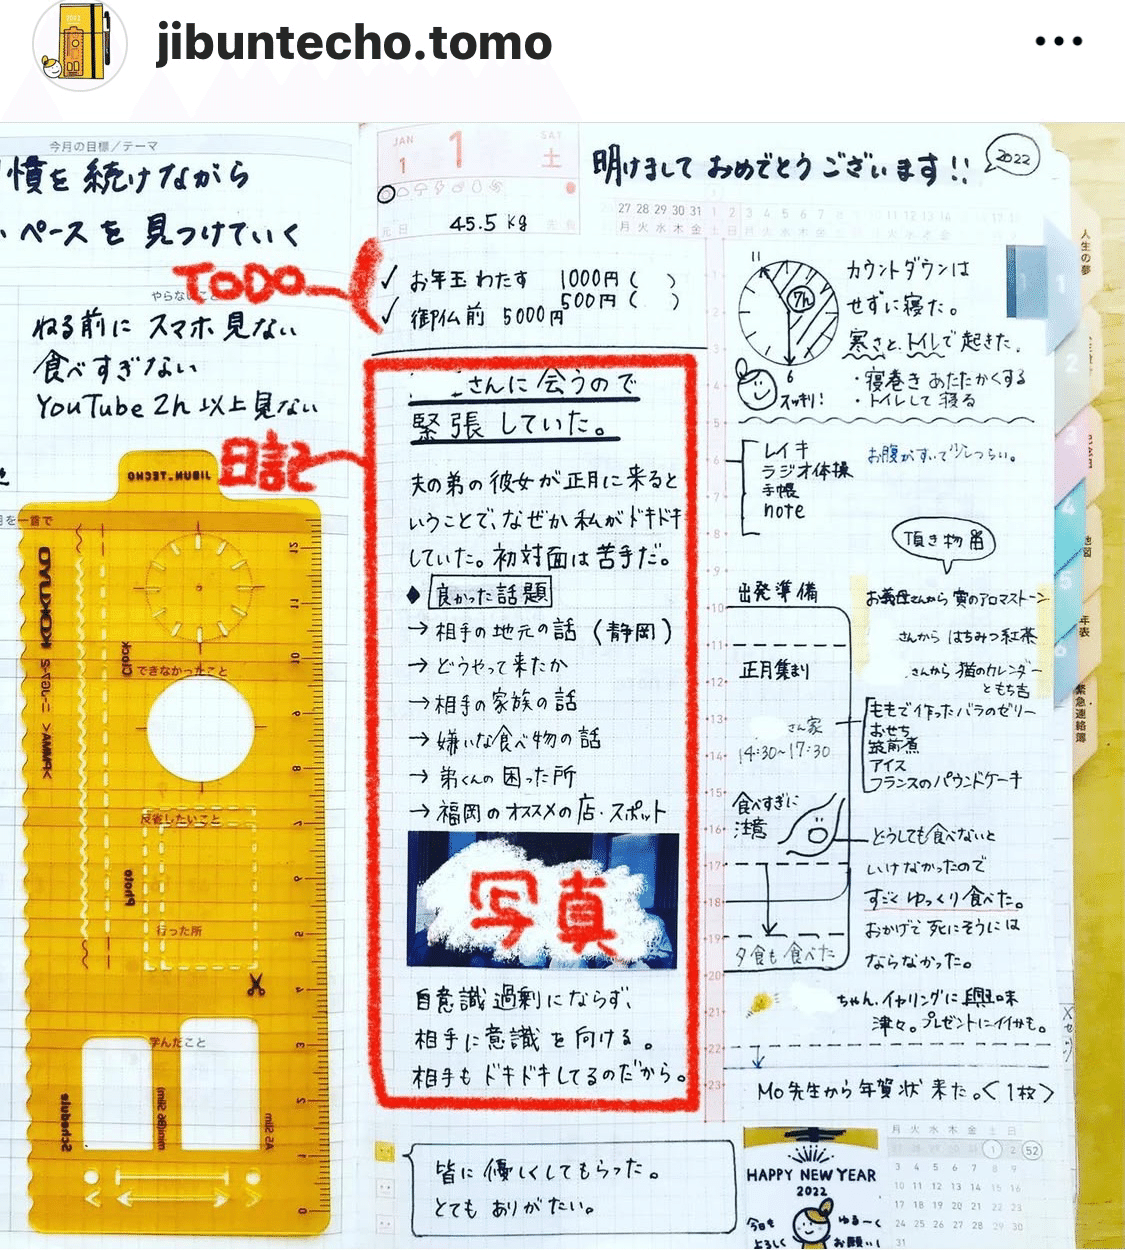 jibuntecho.tomo
今月の目標/テーマ
慣を続けながら
ペースを見つけていく
TODO
ねる前にスマホ見ない
食べすぎない
YouTube 2h以上見ない
日記
JIBUN_TECHO
KOKUYO
Clock
できなかったこと
反省したいこと
Photo
行った所
学んだこと
Schedule
mini(B6 Slim)
A5 Slim
12
11
10
9
8
7
6
5
4
3
2
1
0
JAN
1
1
SAT
土
元日
45.5 kg
明けましておめでとうございます!!
2022
27 28 29 30 31 1 2 3 4 5 6 7 8
月 火 水 木 金 土 日
✓ お年玉わたす 1000円( )
500円( )
✓ 御仏前 5000円
さんに会うので
緊張していた。
夫の弟の彼女が正月に来ると
いうことで、なぜか私がドキドキ
していた。初対面は苦手だ。
◆ 良かった話題
→ 相手の地元の話(静岡)
→ どうやって来たか
→ 相手の家族の話
→ 嫌いな食べ物の話
→ 弟くんの困った所
→ 福岡のオススメの店・スポット
写真
自意識過剰にならず、
相手に意識を向ける。
相手もドキドキしてるのだから。
皆に優しくしてもらった。
とてもありがたい。
11
7h
6
スッキリ!
カウントダウンは
せずに寝た。
寒さと、トイレで起きた。
・寝巻きあたたかくする
・トイレして寝る
レイキ
ラジオ体操
手帳
note
お腹がすいて少しつらい。
頂き物
出発準備
お義母さんから寅のアロマストーン
さんから はちみつ紅茶
さんから 猫のカレンダー
ともち吉
正月集まり
さん家
14:30~17:30
ももで作ったバラのゼリー
おせち
筑前煮
アイス
フランスのパウンドケーキ
食べすぎに
注意
どうしても食べないと
いけなかったので
すごくゆっくり食べた。
おかげで死にそうには
ならなかった。
夕食も食べた
ちゃん、イヤリングに興味
津々。プレゼントにイイかも。
Mo先生から年賀状来た。<1枚>
HAPPY NEW YEAR
2022
今日も
よろしく
ゆる〜く
お願い!
月 火 水 木 金 土 日
1 2 52
3 4 5 6 7 8 9
10 11 12 13 14 15 16
17 18 19 20 21 22 23
24 25 26 27 28 29 30
31
3
4
5
6
7
8
9
10
11
12
13
14
15
16
17
18
19
20
21
22
23
人生の夢
1
2
3
4
地図
5
年表
6
緊急連絡簿